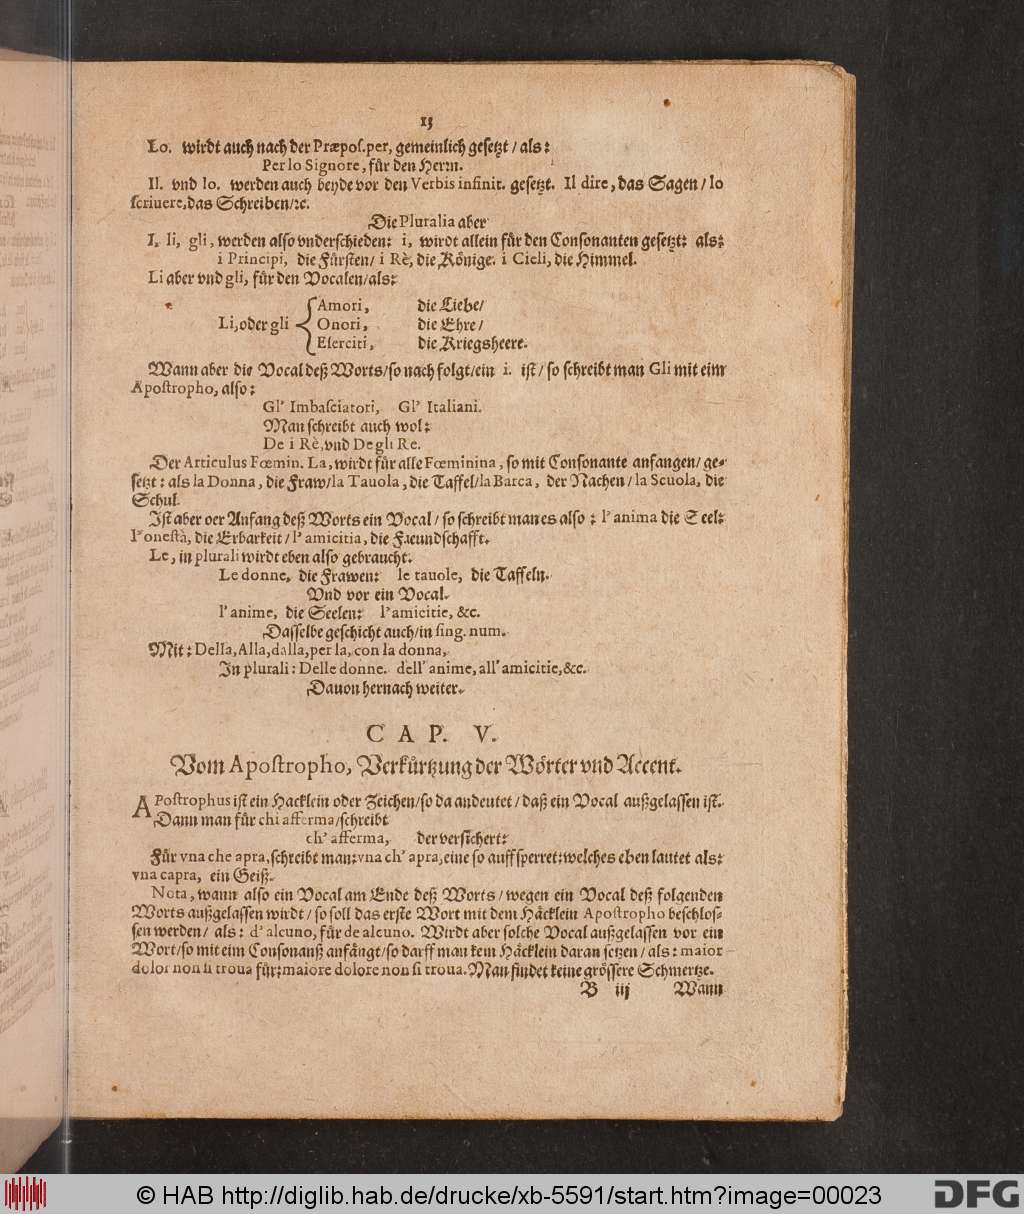 13
Lo. wirdt auch nach der Præpos. per, gemeinlich gesetzt / als:
Per lo Signore, für den Herrn.
Il. vnd lo. werden auch beyde vor den Verbis infinit. gesetzt. Il dire, das Sagen / lo
scriuere, das Schreiben/ꝛc.
Die Pluralia aber
I, li, gli, werden also vnderschieden: i, wirdt allein für den Consonanten gesetzt: als:
i Principi, die Fürsten / i Rè, die Könige. i Cieli, die Himmel.
Li aber vnd gli, für den Vocalen / als:
Li, oder gli { Amori, die Liebe /
Onori, die Ehre /
Eserciti, die Kriegsheere.
Wann aber die Vocal deß Worts / so nach folgt / ein i. ist / so schreibt man Gli mit eim
Apostropho, also:
Gl' Imbasciatori, Gl' Italiani.
Man schreibt auch wol:
De i Rè, vnd Degli Re.
Der Articulus Fœmin. La, wirdt für alle Fœminina, so mit Consonante anfangen / ge-
setzt: als la Donna, die Fraw / la Tauola, die Taffel / la Barca, der Nachen / la Scuola, die
Schul.
Ist aber der Anfang deß Worts ein Vocal / so schreibt man es also: l' anima die Seel:
l' onestà, die Erbarkeit / l' amicitia, die Freundschafft.
Le, in plurali wirdt eben also gebraucht.
Le donne, die Frawen: le tauole, die Taffeln.
Vnd vor ein Vocal.
l' anime, die Seelen: l' amicitie, &c.
Dasselbe geschicht auch / in sing. num.
Mit: Della, Alla, dalla, per la, con la donna,
In plurali: Delle donne. dell' anime, all' amicitie, &c.
Dauon hernach weiter.
CAP. V.
Vom Apostropho, Verkürtzung der Wörter vnd Accent.
APostrophus ist ein Hacklein oder Zeichen / so da andeutet / daß ein Vocal außgelassen ist.
Dann man für chi afferma / schreibt
ch' afferma, der versichert:
Für vna che apra, schreibt man: vna ch' apra, eine so auffsperret: welches eben lautet als:
vna capra, ein Geiß.
Nota, wann also ein Vocal am Ende deß Worts / wegen ein Vocal deß folgenden
Worts außgelassen wirdt / so soll das erste Wort mit dem Häcklein Apostropho beschlos-
sen werden / als: d' alcuno, für de alcuno. Wirdt aber solche Vocal außgelassen vor ein
Wort / so mit eim Consonanß anfängt / so darff man kein Häcklein daran setzen / als: maior
dolor non si troua für: maiore dolore non si troua. Man findet keine grössere Schmertze.
B iij Wann
© HAB http://diglib.hab.de/drucke/xb-5591/start.htm?image=00023
DFG